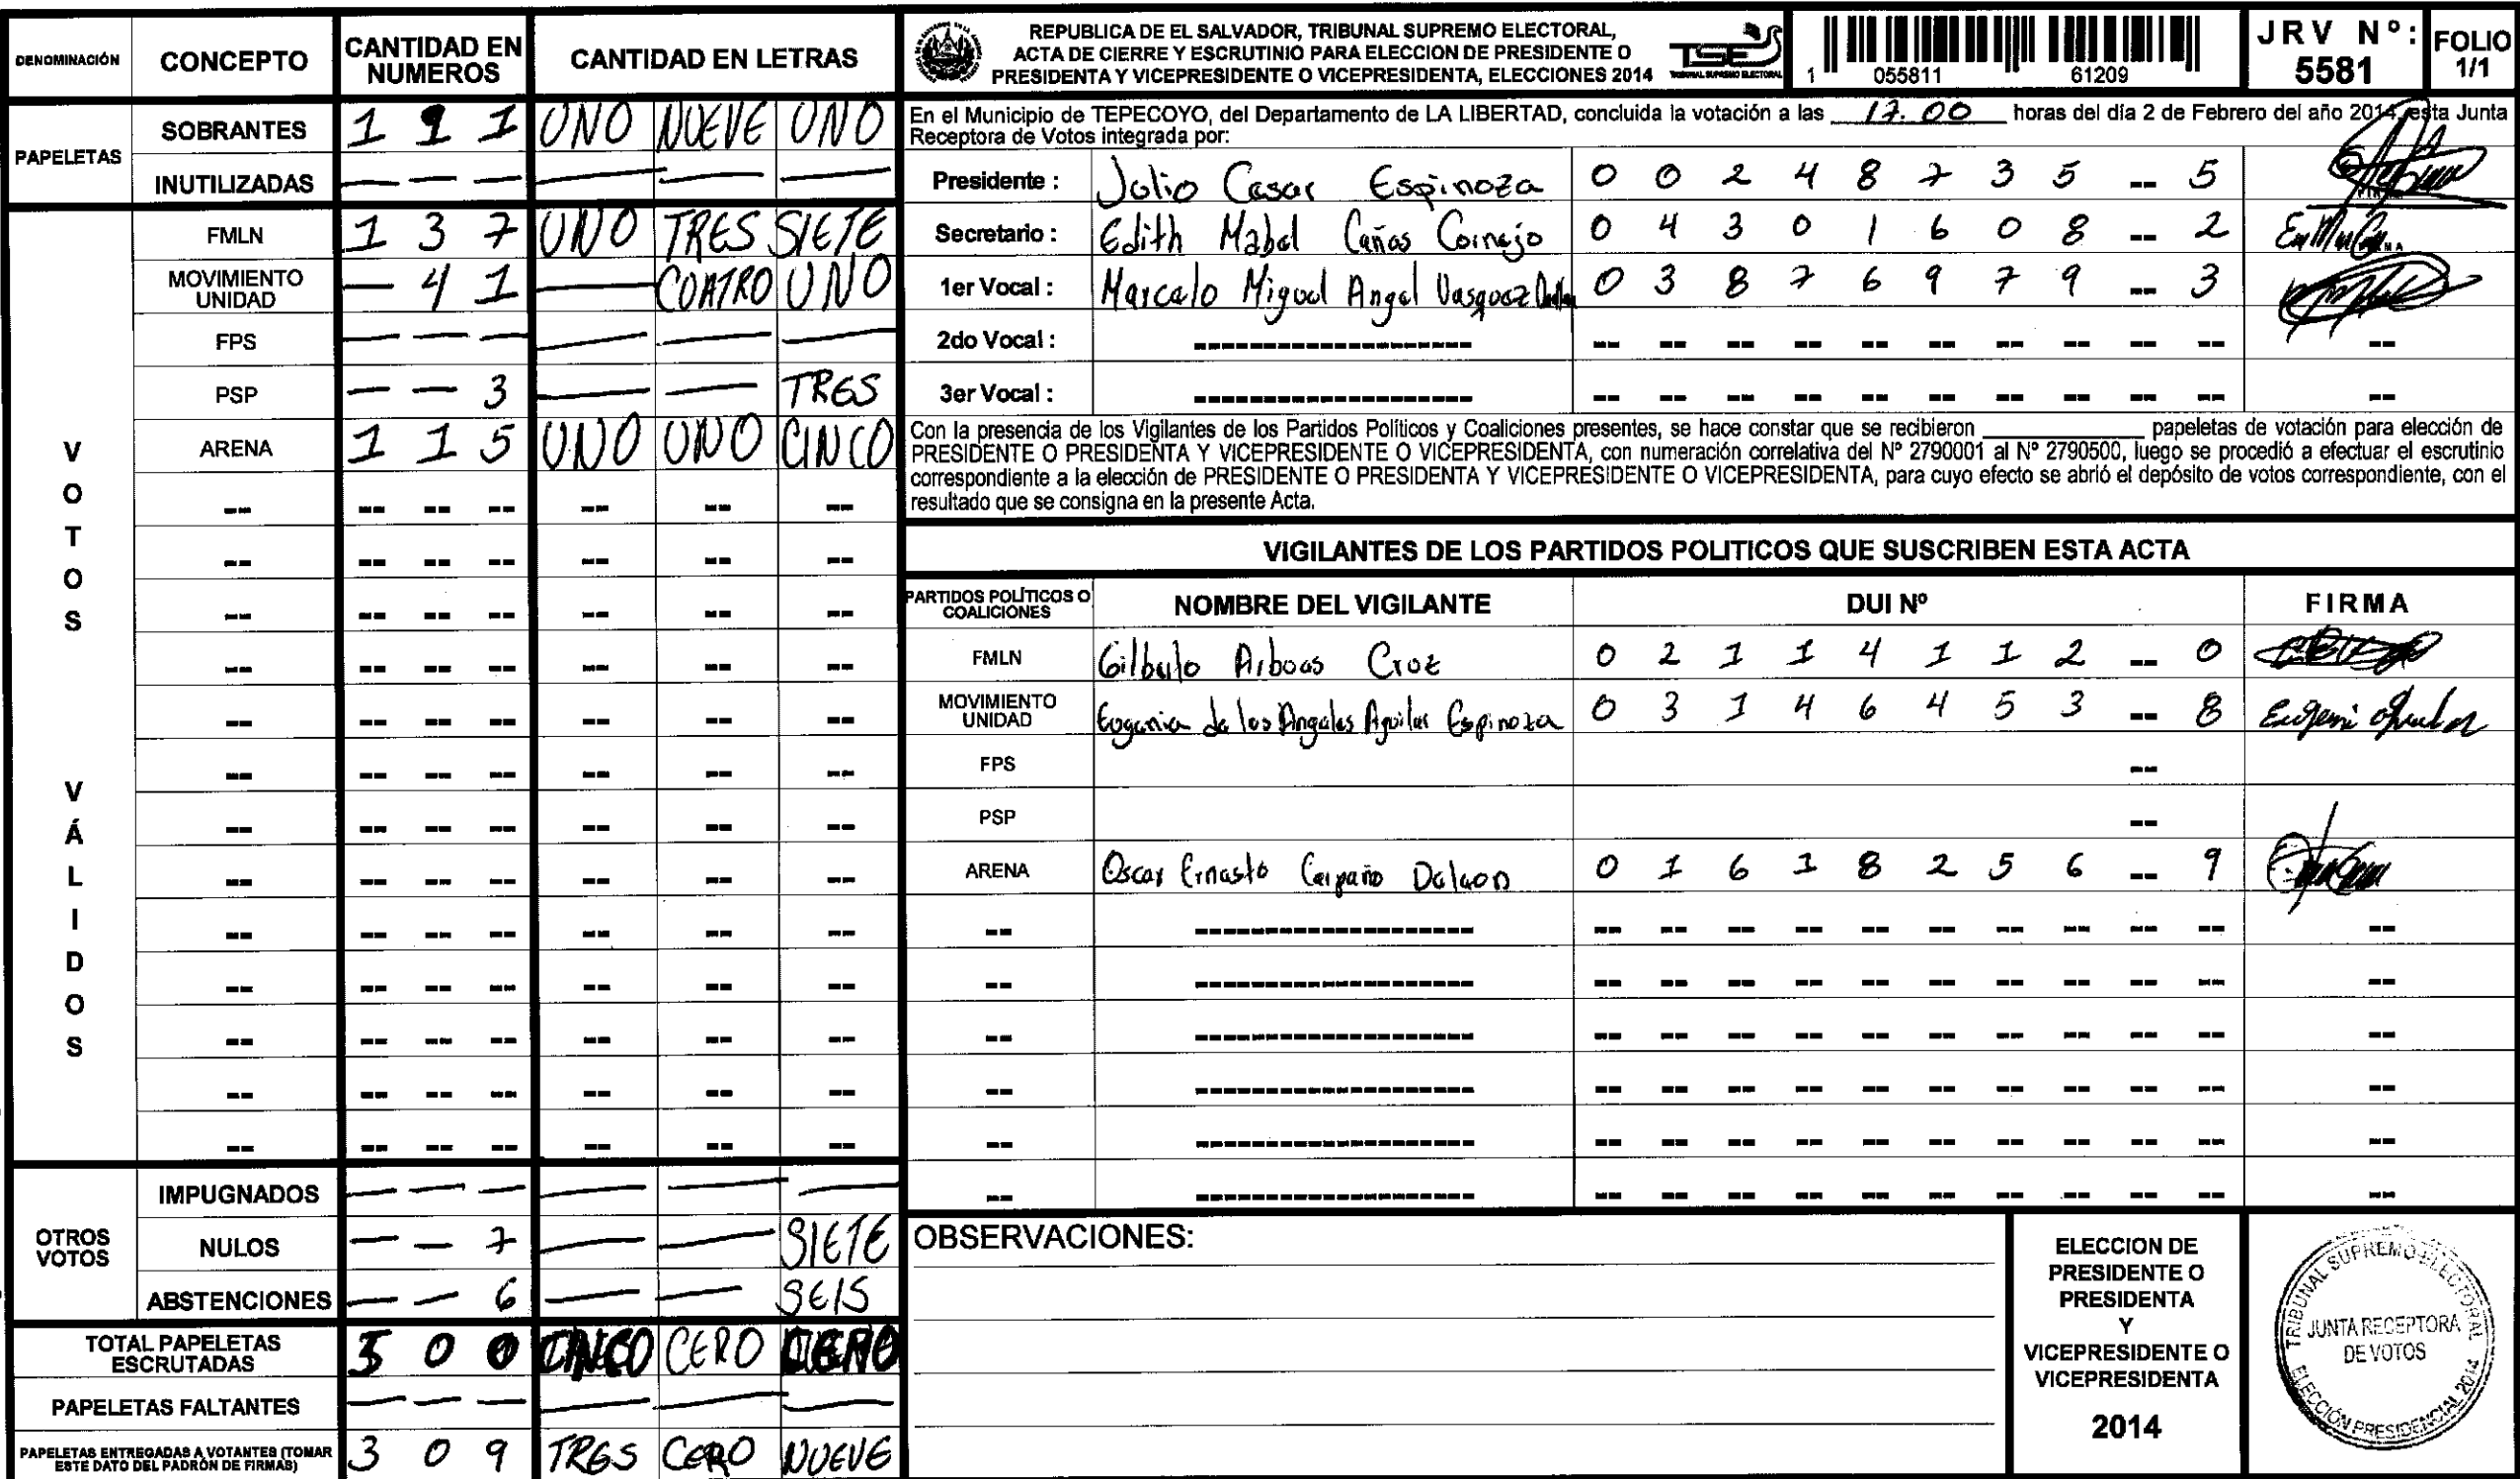 DENOMINACIÓN CONCEPTO CANTIDAD EN NUMEROS CANTIDAD EN LETRAS
PAPELETAS
SOBRANTES 1 9 1 UNO NUEVE UNO
INUTILIZADAS — — — — — —
VOTOS VÁLIDOS
FMLN 1 3 7 UNO TRES SIETE
MOVIMIENTO UNIDAD — 4 1 — CUATRO UNO
FPS — — — — — —
PSP — — 3 — — TRES
ARENA 1 1 5 UNO UNO CINCO
-- -- -- -- -- -- --
-- -- -- -- -- -- --
-- -- -- -- -- -- --
-- -- -- -- -- -- --
-- -- -- -- -- -- --
-- -- -- -- -- -- --
-- -- -- -- -- -- --
-- -- -- -- -- -- --
-- -- -- -- -- -- --
-- -- -- -- -- -- --
-- -- -- -- -- -- --
-- -- -- -- -- -- --
-- -- -- -- -- -- --
OTROS VOTOS
IMPUGNADOS — — — — — —
NULOS — — 7 — — SIETE
ABSTENCIONES — — 6 — — SEIS
TOTAL PAPELETAS ESCRUTADAS 5 0 0 CINCO CERO CERO
PAPELETAS FALTANTES — — — — — —
PAPELETAS ENTREGADAS A VOTANTES (TOMAR ESTE DATO DEL PADRÓN DE FIRMAS) 3 0 9 TRES CERO NUEVE
REPUBLICA DE EL SALVADOR, TRIBUNAL SUPREMO ELECTORAL,
ACTA DE CIERRE Y ESCRUTINIO PARA ELECCION DE PRESIDENTE O
PRESIDENTA Y VICEPRESIDENTE O VICEPRESIDENTA, ELECCIONES 2014
TSE
TRIBUNAL SUPREMO ELECTORAL
1 055811 61209
JRV Nº: 5581
FOLIO 1/1
En el Municipio de TEPECOYO, del Departamento de LA LIBERTAD, concluida la votación a las 17.00 horas del día 2 de Febrero del año 2014, esta Junta
Receptora de Votos integrada por:
Presidente : Julio Cesar Espinoza 0 0 2 4 8 7 3 5 -- 5
Secretario : Edith Mabel Cañas Cornejo 0 4 3 0 1 6 0 8 -- 2
1er Vocal : Marcelo Miguel Angel Vasquez 0 3 8 7 6 9 7 9 -- 3
2do Vocal : -------------------- -- -- -- -- -- -- -- -- -- -- --
3er Vocal : -------------------- -- -- -- -- -- -- -- -- -- -- --
Con la presencia de los Vigilantes de los Partidos Políticos y Coaliciones presentes, se hace constar que se recibieron ________ papeletas de votación para elección de
PRESIDENTE O PRESIDENTA Y VICEPRESIDENTE O VICEPRESIDENTA, con numeración correlativa del Nº 2790001 al Nº 2790500, luego se procedió a efectuar el escrutinio
correspondiente a la elección de PRESIDENTE O PRESIDENTA Y VICEPRESIDENTE O VICEPRESIDENTA, para cuyo efecto se abrió el depósito de votos correspondiente, con el
resultado que se consigna en la presente Acta.
VIGILANTES DE LOS PARTIDOS POLITICOS QUE SUSCRIBEN ESTA ACTA
PARTIDOS POLÍTICOS O COALICIONES NOMBRE DEL VIGILANTE DUI Nº FIRMA
FMLN Cruz 0 2 1 1 4 1 1 2 -- 0
MOVIMIENTO UNIDAD Eugenia de los Angeles Aguilar Espinoza 0 3 1 4 6 4 5 3 -- 8
FPS --
PSP --
ARENA Oscar Ernesto 0 1 6 1 8 2 5 6 -- 9
-- -------------------- -- -- -- -- -- -- -- -- -- -- --
-- -------------------- -- -- -- -- -- -- -- -- -- -- --
-- -------------------- -- -- -- -- -- -- -- -- -- -- --
-- -------------------- -- -- -- -- -- -- -- -- -- -- --
-- -------------------- -- -- -- -- -- -- -- -- -- -- --
-- -------------------- -- -- -- -- -- -- -- -- -- -- --
OBSERVACIONES:
ELECCION DE
PRESIDENTE O
PRESIDENTA
Y
VICEPRESIDENTE O
VICEPRESIDENTA
2014
TRIBUNAL SUPREMO ELECTORAL
JUNTA RECEPTORA
DE VOTOS
ELECCIÓN PRESIDENCIAL 2014